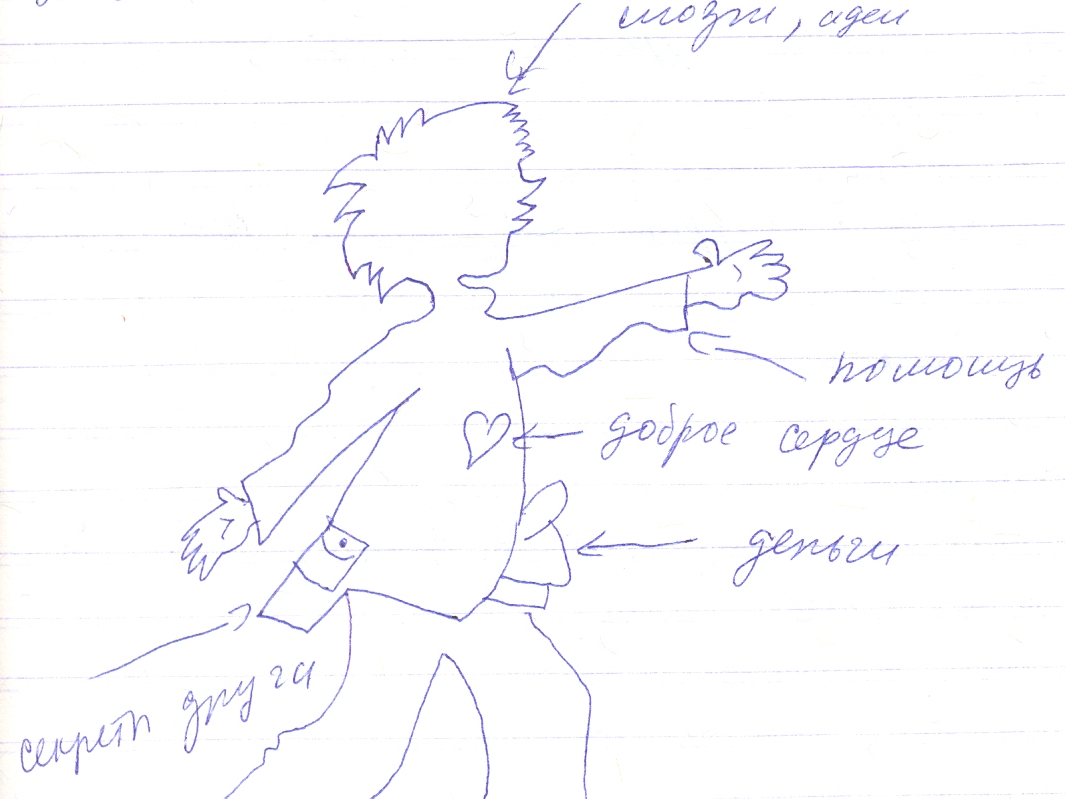 мозги, идеи
помощь
доброе сердце
деньги
секреты друга